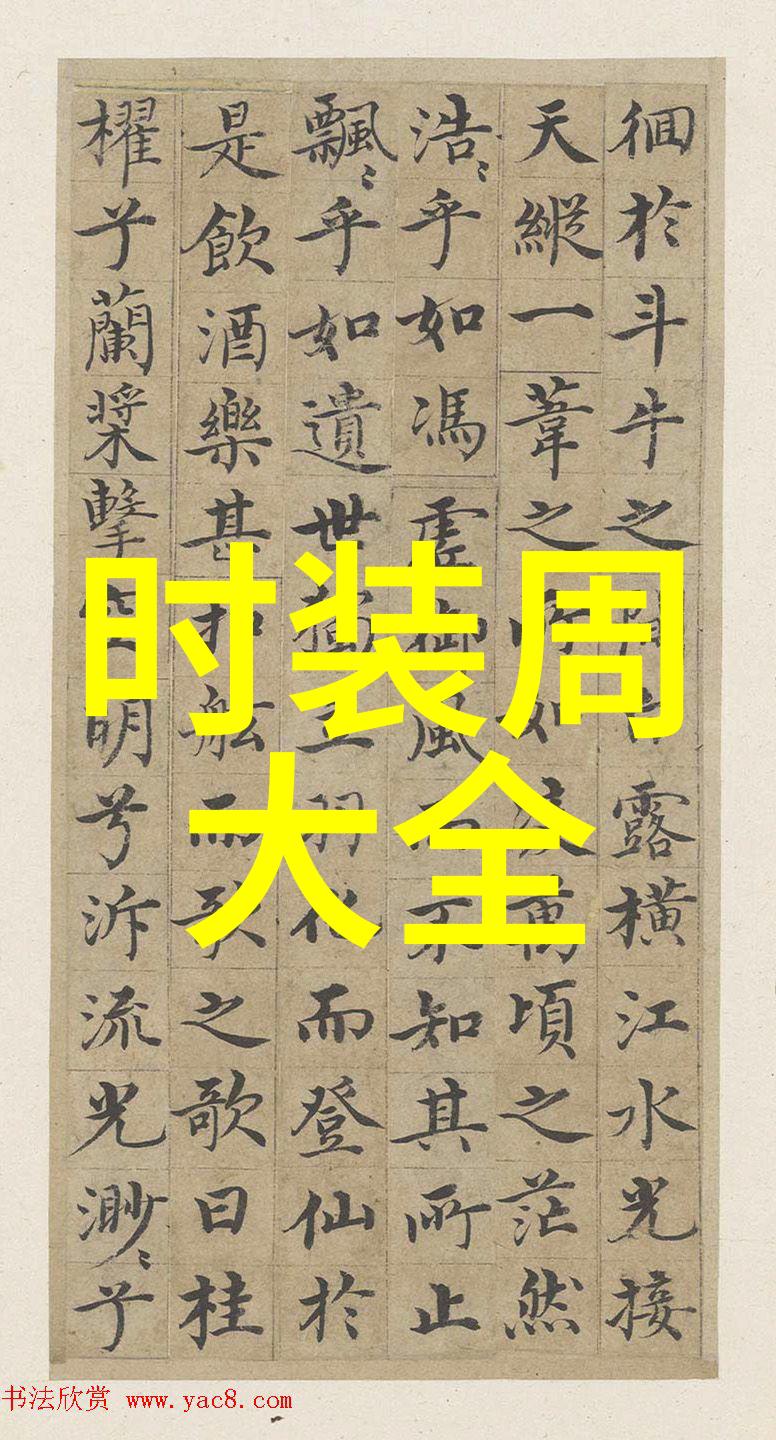 徊於斗牛之露橫江水光接
天縱一葦之如萬頃之茫然
浩〻乎如馮虛御風不知其所止
飄〻乎如遺世羽化而登仙於
是飲酒樂甚扣舷而歌之歌曰桂
櫂兮蘭槳擊空明兮泝流光渺〻兮
时装周
大全
书法欣赏 www.yac8.com